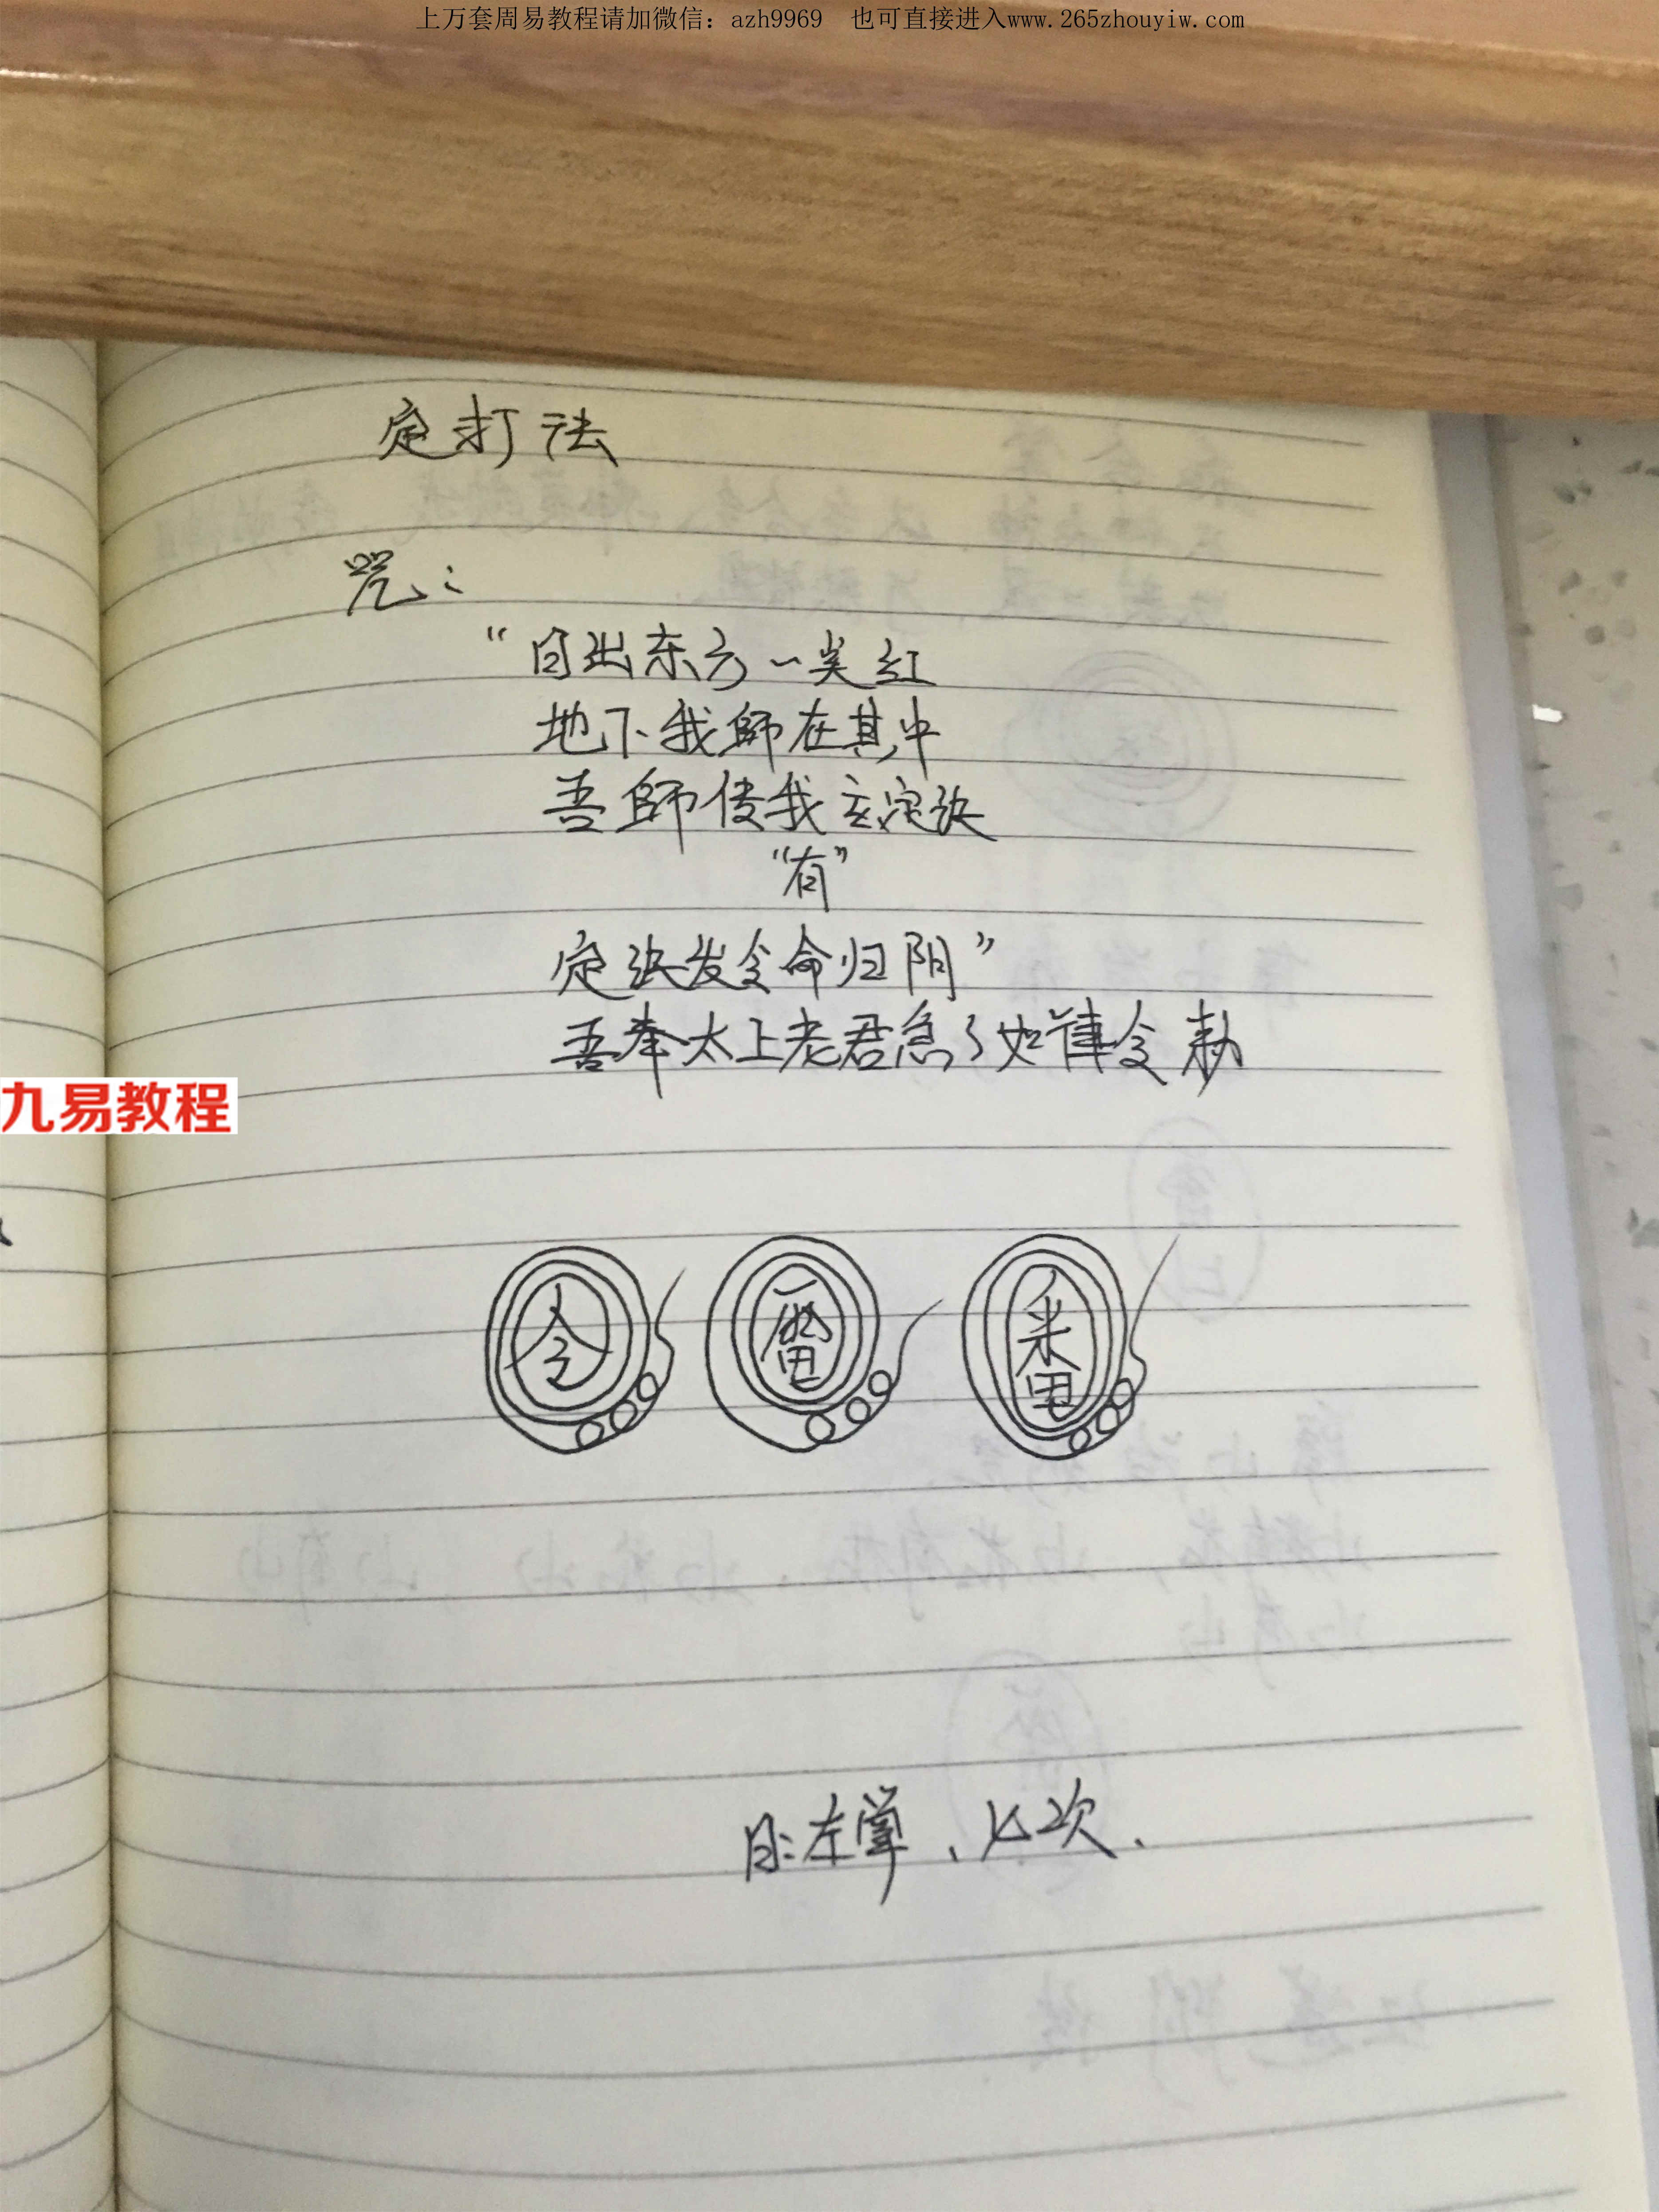 上万套周易教程请加微信：azh9969 也可直接进入www.265zhouyiw.com
定打法
咒：
“日出东方一尖红
地下我師在其中
吾師传我玄定诀
“有”
定诀发令命归阴”
吾奉太上老君急々如律令敕
九易教程
令
雷
日：左掌、七次、